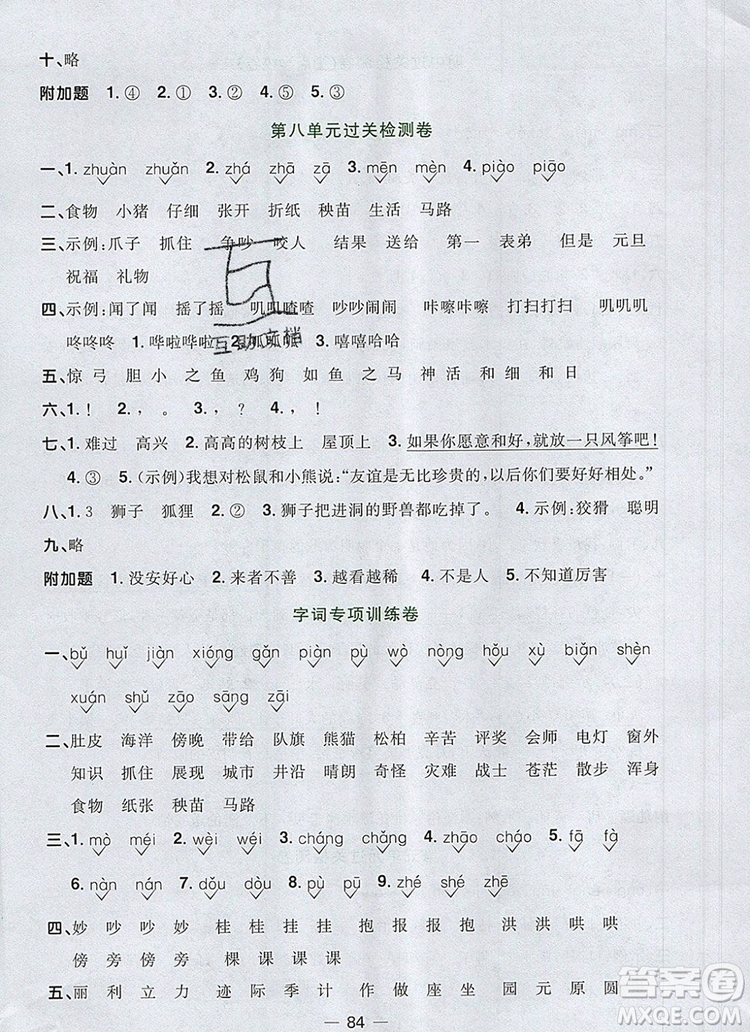 十、略
附加题 1.④ 2.① 3.② 4.⑤ 5.③
第八单元过关检测卷
一、1. zhuàn zhuǎn 2. zhá zhā zā 3. mēn mèn 4. piào piāo
二、食物 小猪 仔细 张开 折纸 秧苗 生活 马路
三、示例:爪子 抓住 争吵 咬人 结果 送给 第一 表弟 但是 元旦
祝福 礼物
四、示例:闻了闻 摇了摇 叽叽喳喳 吵吵闹闹 咔嚓咔嚓 打扫打扫 叽叽叽
咚咚咚 1.哗啦哗啦 2.叽叽 3.嘻嘻哈哈
五、惊 弓 胆 小 之 鱼 鸡 狗 如 鱼 之 马 神 活 和 细 和 日
六、1.! 2., 。 3., 。 4.!
七、1.难过 高兴 2.高高的树枝上 屋顶上 3.如果你愿意和好,就放一只风筝吧!
4.③ 5.(示例)我想对松鼠和小熊说:“友谊是无比珍贵的,你们要好好相处。”
八、1.3 狮子 狐狸 2.② 3.狮子把进洞的野兽都吃掉了。 4.示例:狡猾 聪明
九、略
附加题 1.没安好心 2.来者不善 3.越看越稀 4.不是人 5.不知道厉害
字词专项训练卷
一、bǔ huǐ jiàn xióng gǎn piàn pù wò nòng hǒu xù biǎn shèn
xuán shǔ zāo sāng zāi
二、肚皮 海洋 傍晚 带给 队旗 熊猫 松柏 辛苦 评奖 会师 电灯 窗外
知识 抓住 展现 城市 井沿 晴朗 奇怪 灾难 战士 苍茫 散步 浑身
食物 纸张 秧苗 马路
三、1. mò méi 2. wèi wéi 3. cháng chǎng 4. zhāo cháo 5. fā fà
6. nàn nán 7. dǒu dōu 8. pù pū 9. zhé shé zhē
四、妙 吵 吵 妙 桂 桂 挂 挂 抱 报 报 抱 洪 洪 哄 哄
傍 旁 傍 旁 棵 课 棵 课
五、丽 利 立 力 迹 际 季 计 作 做 座 坐 园 元 原 圆
84
互助文档
答案圈
MXQE.COM